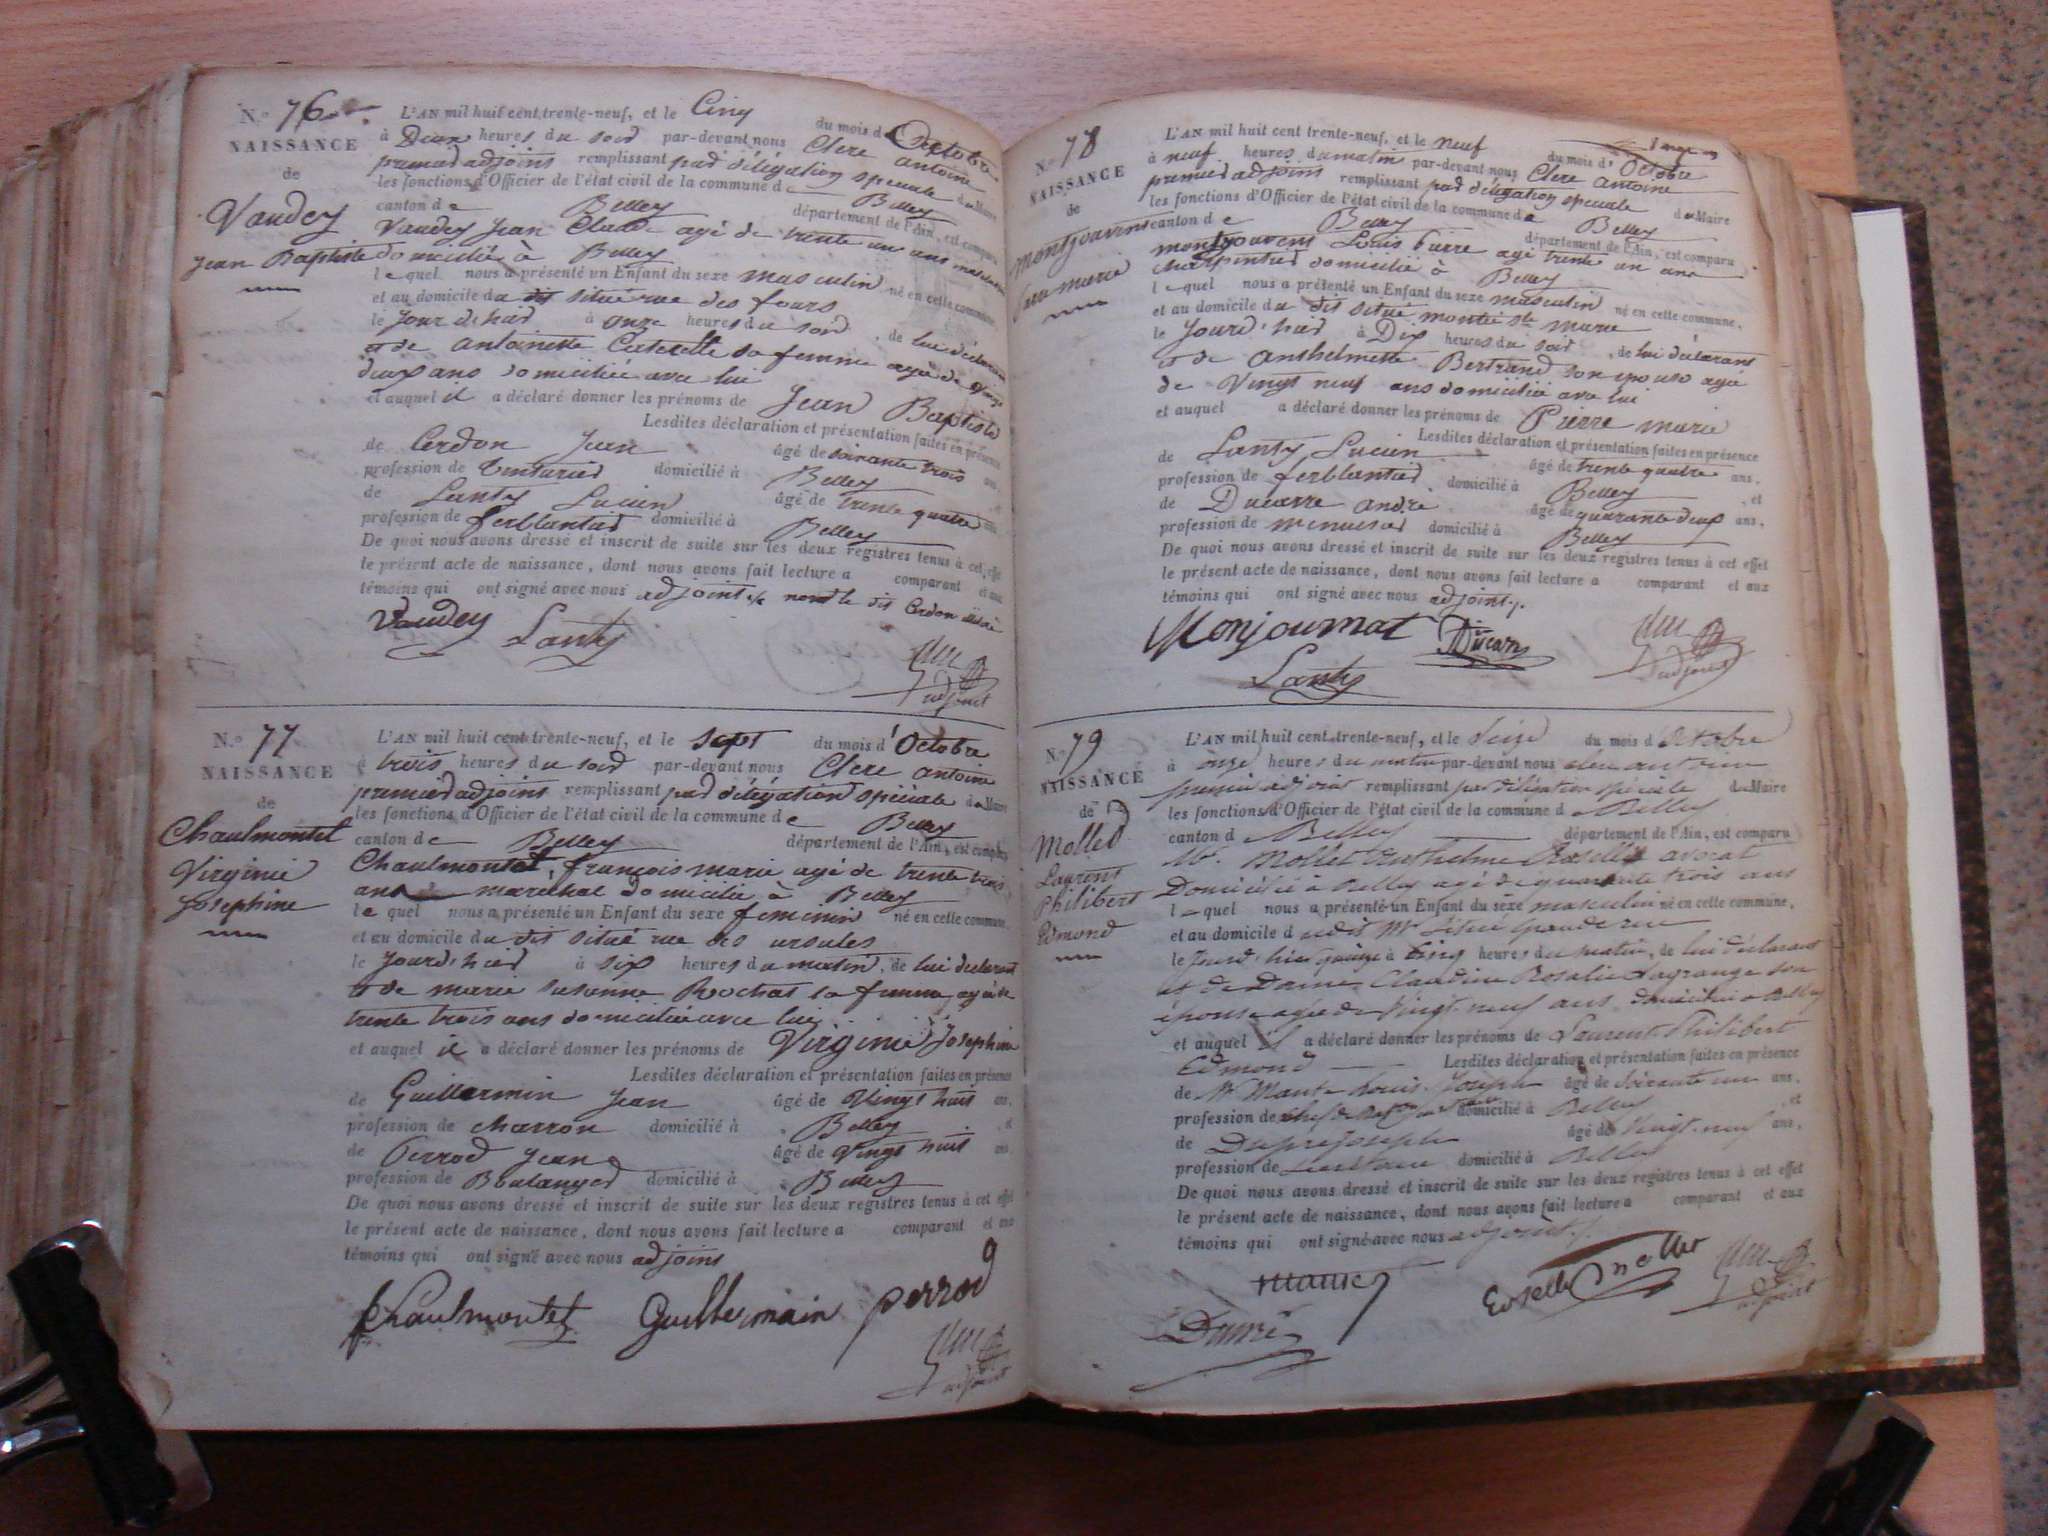 N.º 76
NAISSANCE
de
Vaudey
Jean Baptiste
L'AN mil huit cent trente-neuf, et le Cinq du mois d'Octobre
à Deux heures du soir par-devant nous Clerc antoine
premier adjoint remplissant par délégation spéciale du Maire
les fonctions d'Officier de l'état civil de la commune de Belley
canton de Belley département de l'Ain, est comparu
Vaudey Jean Claude agé de trente un ans
domicilié à Belley
lequel nous a présenté un Enfant du sexe masculin né en cette commune,
et au domicile du dit situé rue des fours
le Jour d'hier à onze heures du soir, de lui déclarant
et de antoinette sa femme agée de vingt
deux ans domiciliée avec lui
et auquel il a déclaré donner les prénoms de Jean Baptiste
Lesdites déclaration et présentation faites en présence
de Cerdon Jean âgé de soixante trois ans,
profession de Teinturier domicilié à Belley
de Lanty Lucien âgé de trente quatre ans
profession de ferblantier domicilié à Belley
De quoi nous avons dressé et inscrit de suite sur les deux registres tenus à cet effet
le présent acte de naissance, dont nous avons fait lecture a comparant et aux
témoins qui ont signé avec nous adjoint non le dit Cerdon
Vaudey Lanty
Clerc
adjoint
N.º 77
NAISSANCE
de
Chaulmontet
Virginie
Josephine
L'AN mil huit cent trente-neuf, et le sept du mois d'Octobre
à trois heures du soir par-devant nous Clerc antoine
premier adjoint remplissant par délégation spéciale du Maire
les fonctions d'Officier de l'état civil de la commune de Belley
canton de Belley département de l'Ain, est comparu
Chaulmontet, françois marie agé de trente trois
ans marechal domicilié à Belley
lequel nous a présenté un Enfant du sexe feminin né en cette commune,
et au domicile du dit situé rue des ursules
le Jourd'hier à six heures du matin, de lui déclarant
et de marie susanne Rochas sa femme, agée de
trente trois ans domiciliée avec lui
et auquel il a déclaré donner les prénoms de Virginie Josephine
Lesdites déclaration et présentation faites en présence
de Guillermin Jean âgé de Vingt huit ans,
profession de charron domicilié à Belley, et
de Perrod Jean âgé de Vingt huit ans
profession de Boulanger domicilié à Belley
De quoi nous avons dressé et inscrit de suite sur les deux registres tenus à cet effet
le présent acte de naissance, dont nous avons fait lecture a comparant et aux
témoins qui ont signé avec nous adjoint
Chaulmontet Guillermain perrod
Clerc
adjoint
N.º 78
NAISSANCE
de
Montjouvent
marie
L'AN mil huit cent trente-neuf, et le neuf du mois d'Octobre
à neuf heures du matin par-devant nous Clerc antoine
premier adjoint remplissant par délégation spéciale du Maire
les fonctions d'Officier de l'état civil de la commune de Belley
canton de Belley département de l'Ain, est comparu
montjouvent Louis pierre agé trente un ans
charpentier domicilié à Belley
lequel nous a présenté un Enfant du sexe masculin né en cette commune,
et au domicile du dit situé montée ste marie
le Jourd'hier à Dix heures du soir, de lui déclarant
et de anthelmette Bertrand son epouse agée
de Vingt neuf ans domiciliée avec lui
et auquel a déclaré donner les prénoms de Pierre marie
Lesdites déclaration et présentation faites en présence
de Lanty Lucien âgé de trente quatre ans,
profession de ferblantier, domicilié à Belley, et
de Ducarre andré âgé de quarante deux ans,
profession de menuisier domicilié à Belley
De quoi nous avons dressé et inscrit de suite sur les deux registres tenus à cet effet
le présent acte de naissance, dont nous avons fait lecture a comparant et aux
témoins qui ont signé avec nous adjoint
Monjournat
Lanty
Clerc
adjoint
N.º 79
NAISSANCE
de
Mollet
Laurent
Philibert
Edmond
L'AN mil huit cent trente-neuf, et le Seize du mois d'Octobre
à onze heures du matin par-devant nous clerc antoine
premier adjoint remplissant par délégation spéciale du Maire
les fonctions d'Officier de l'état civil de la commune d Belley
canton d Belley département de l'Ain, est comparu
Mr. Mollet anthelme avocat
Domicilié à Belley agé de quarante trois ans
lequel nous a présenté un Enfant du sexe masculin né en cette commune,
et au domicile dudit Mr situé grande rue
le Jourd'hier quinze à Cinq heures du matin, de lui déclarant
et de Dame Claudine Rosalie Lagrange son
épouse agée de vingt-neuf ans, domiciliée a Belley
et auquel il a déclaré donner les prénoms de Laurent Philibert
Edmond Lesdites déclaration et présentation faites en présence
de Mr Louis Joseph âgé de soixante un ans,
profession de chef de domicilié à Belley, et
de Dupré Joseph âgé de vingt-neuf ans,
profession de domicilié à Belley
De quoi nous avons dressé et inscrit de suite sur les deux registres tenus à cet effet
le présent acte de naissance, dont nous avons fait lecture a comparant et aux
témoins qui ont signé avec nous adjoint
Clerc
adjoint